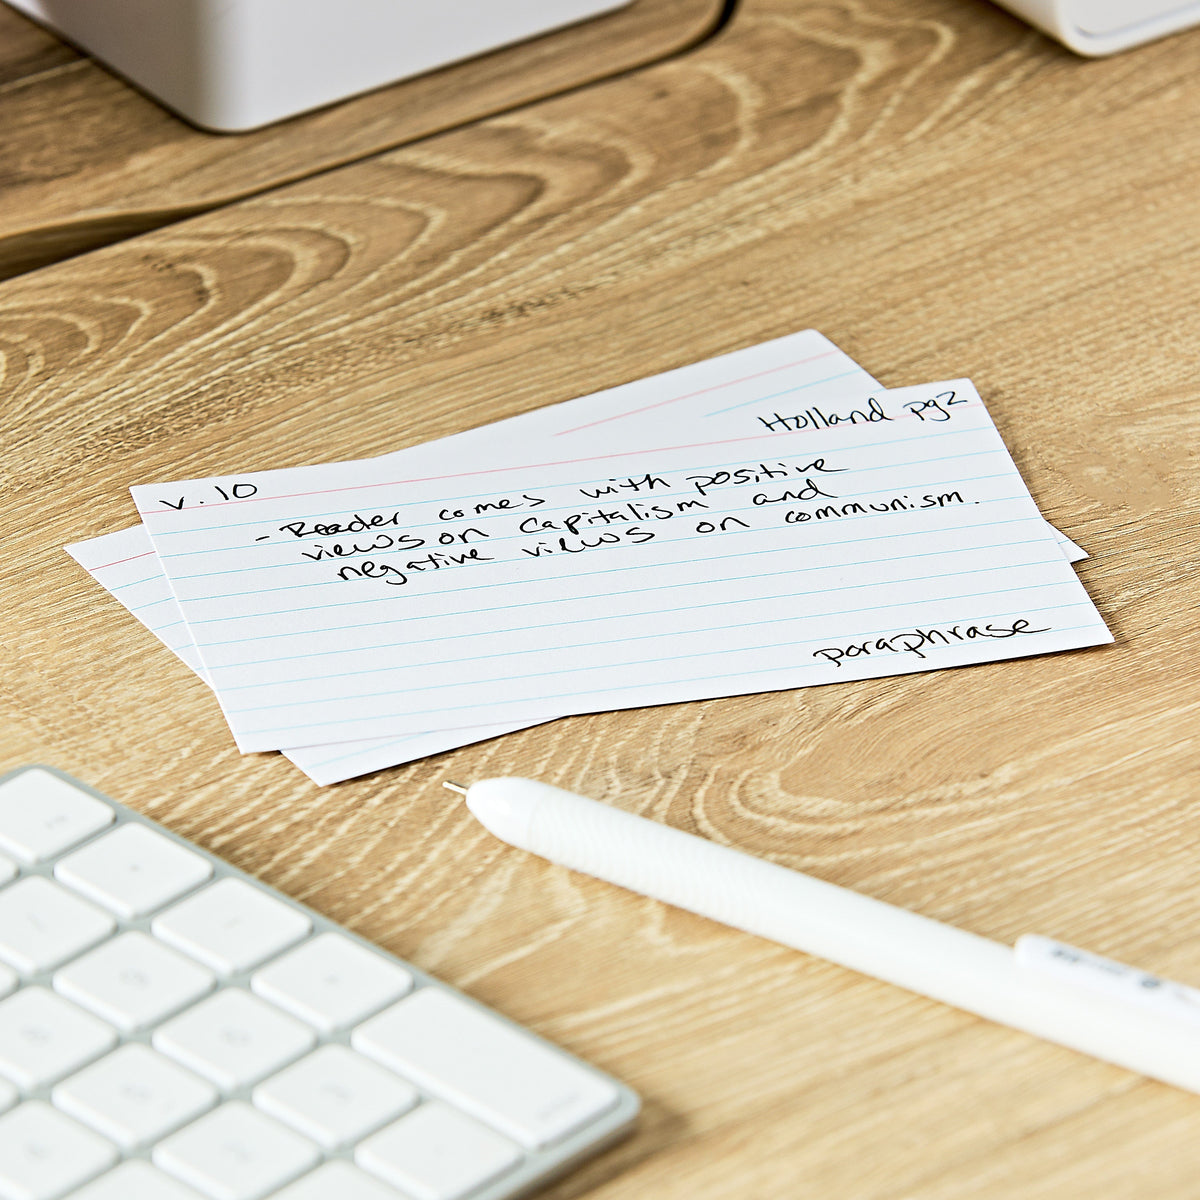 Holland pg2
V. 10
- Reader comes with positive
views on Capitalism and
negative views on communism.
paraphrase